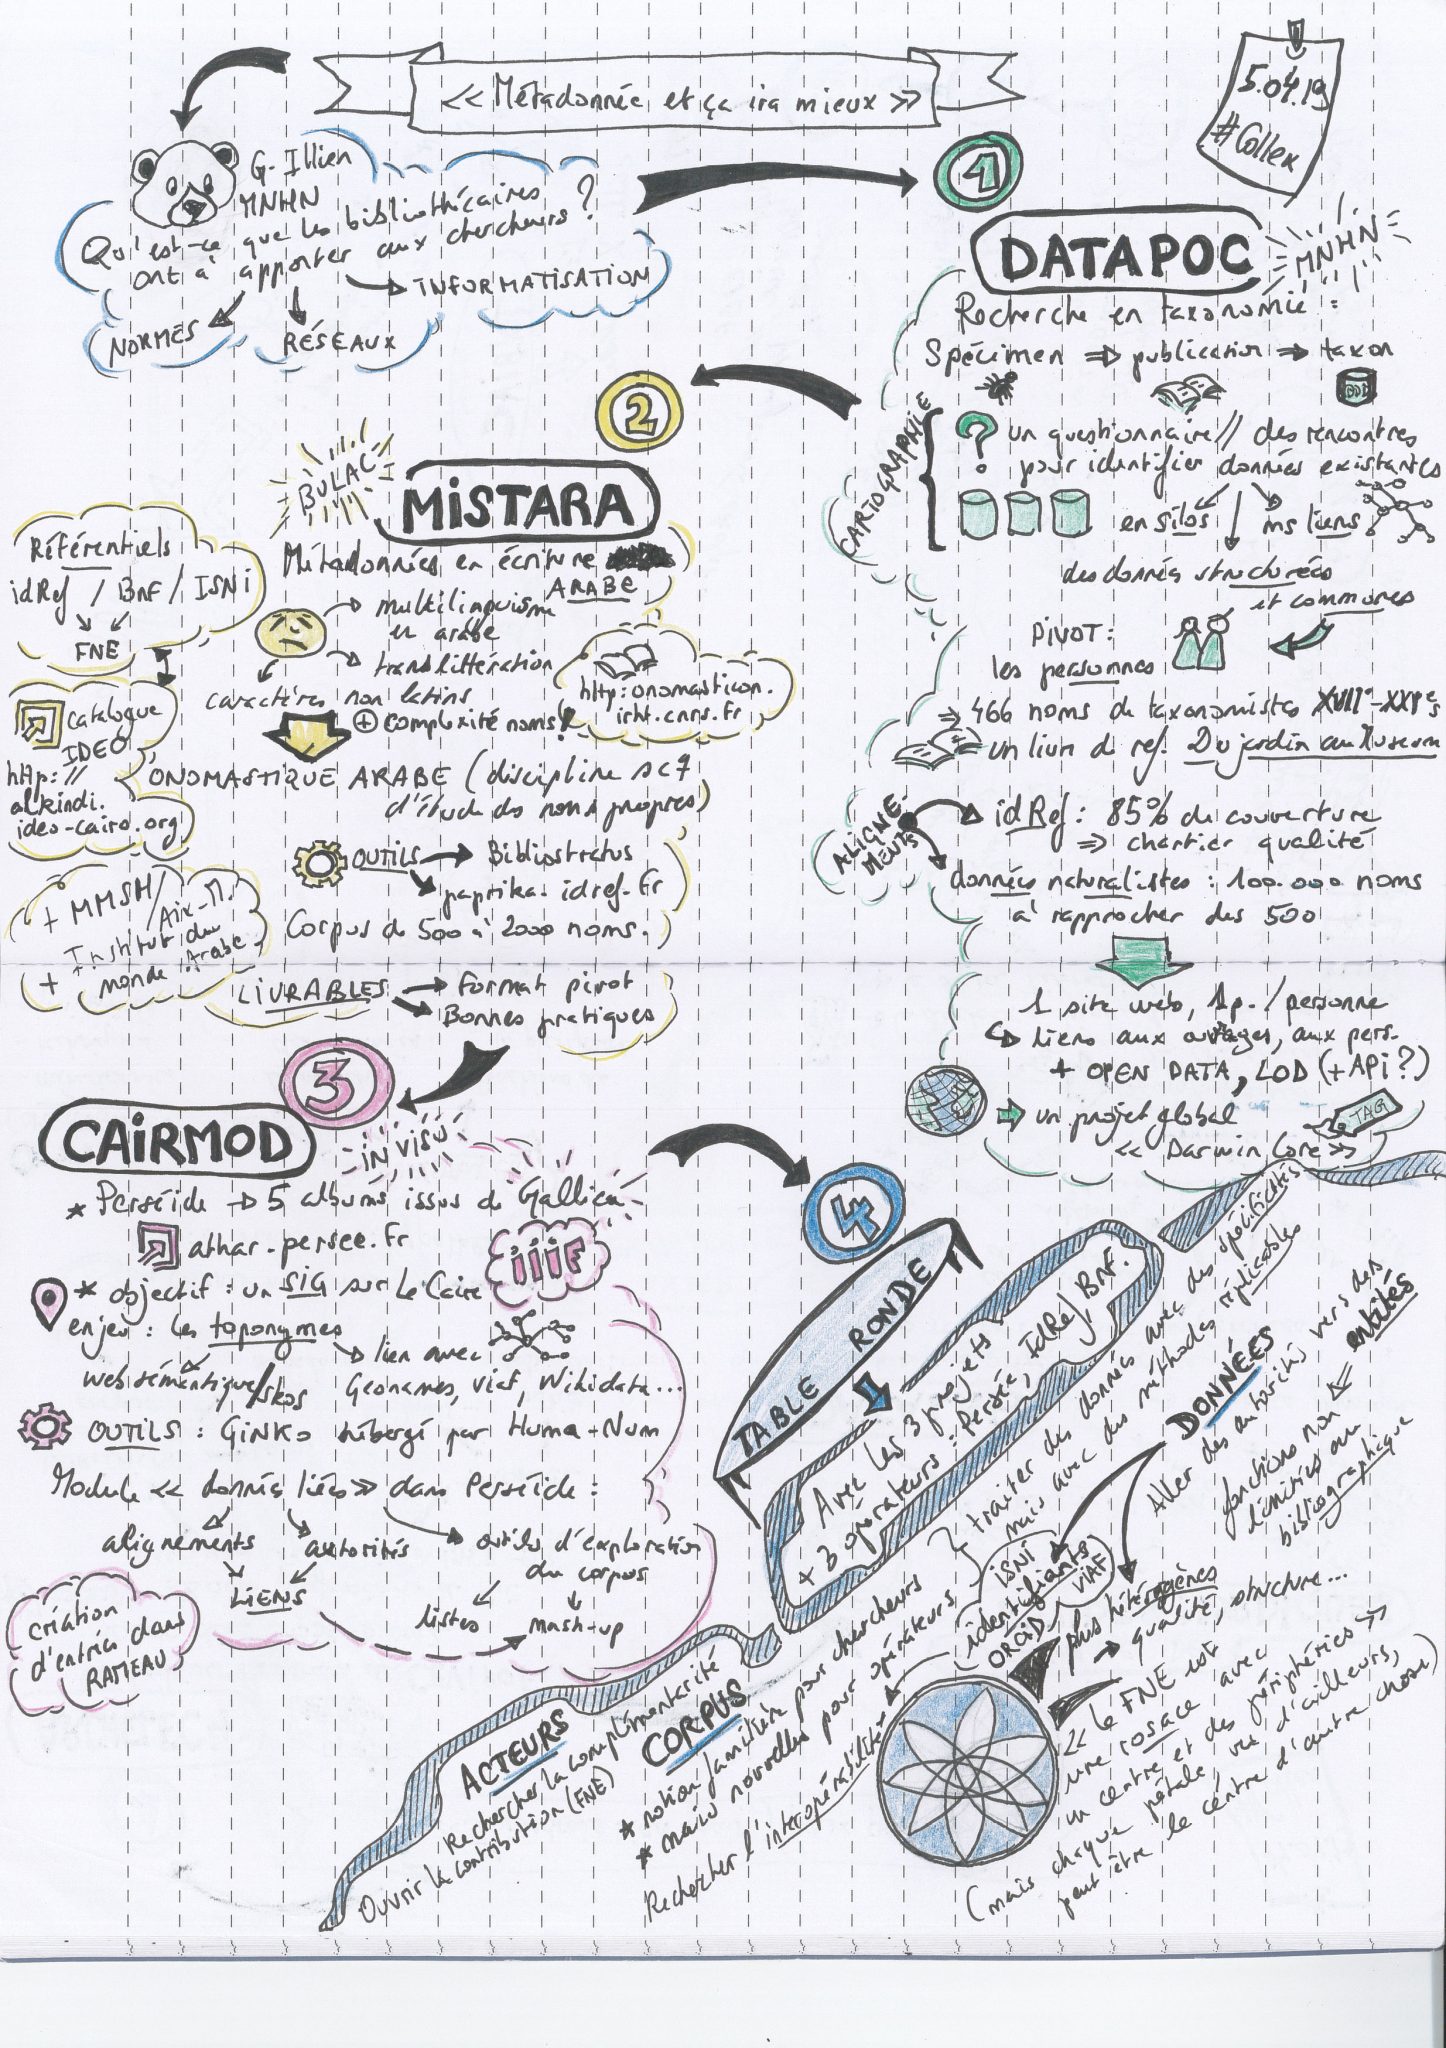 « Métadonnée et ça ira mieux »
5.04.19
#Collex
G. Illien
MNHN
Qu'est-ce que les bibliothécaires
ont à apporter aux chercheurs ?
INFORMATISATION
NORMES
RÉSEAUX
1
DATAPOC
MNHN
Recherche en taxonomie :
Spécimen ⇒ publication ⇒ taxon
CARTOGRAPHIE
? un questionnaire // des rencontres
pour identifier données existantes
en silos
ms liens
des données structurées
et communes
PIVOT :
les personnes
⇒ 466 noms de taxonomistes XVIIe-XXIe s
= un livre de ref. Du jardin au Museum
ALIGNE-
MENTS
idRef : 85% de couverture
⇒ chantier qualité
données naturalistes : 100.000 noms
à rapprocher des 500
1 site web, 1p. / personne
liens aux ouvrages, aux pers.
+ OPEN DATA, LOD (+ API ?)
un projet global
TAG
« Darwin Core »
2
BULAC
MISTARA
Métadonnées en écriture
ARABE
multilinguisme
en arabe
translittération
caractères non latins
+ complexité noms !
http:onomasticon.
irht.cnrs.fr
Référentiels
idRef / BnF / ISNI
FNE
catalogue
IDEO
http://
alkindi.
ideo-cairo.org
ONOMASTIQUE ARABE (discipline sc
d'étude des noms propres)
OUTILS → Bibliostratus
paprika.idref.fr
Corpus de 500 à 2000 noms.
+ MMSH/
Aix-M.
+ Institut du
monde Arabe
LIVRABLES → Format pivot
Bonnes pratiques
3
CAIRMOD
INVISU
* Perséide → 5 albums issus de Gallica
athar.persee.fr
iiif
* objectif : un SIG sur Le Caire
enjeu : les toponymes
web sémantique/skos
lien avec
Geonames, viaf, Wikidata...
OUTILS : GINKO hébergé par Huma-Num
Module « données liées » dans Perséide :
alignements
autorités
outils d'exploration
du corpus
LIENS
listes
mash-up
création
d'entrées dans
RAMEAU
4
TABLE RONDE
Avec les 3 projets
+ 3 opérateurs : Persée, IdRef, BnF.
ACTEURS
Rechercher la complémentarité
Ouvrir la contribution (FNE)
CORPUS
* notion familière pour chercheurs
* mais nouvelle pour opérateurs
Rechercher l'interopérabilité
traiter des données avec des spécificités
mais avec des méthodes réplicables
DONNÉES
Aller des autorités vers des
entités
fonctions non
limitées au
bibliographique
ISNI
identifiants
ORCID
VIAF
plus hétérogènes
→ qualité, structure...
« Le FNE est
une rosace avec
un centre et des périphéries »
(mais chaque pétale, vu d'ailleurs,
peut être le centre d'autre chose)